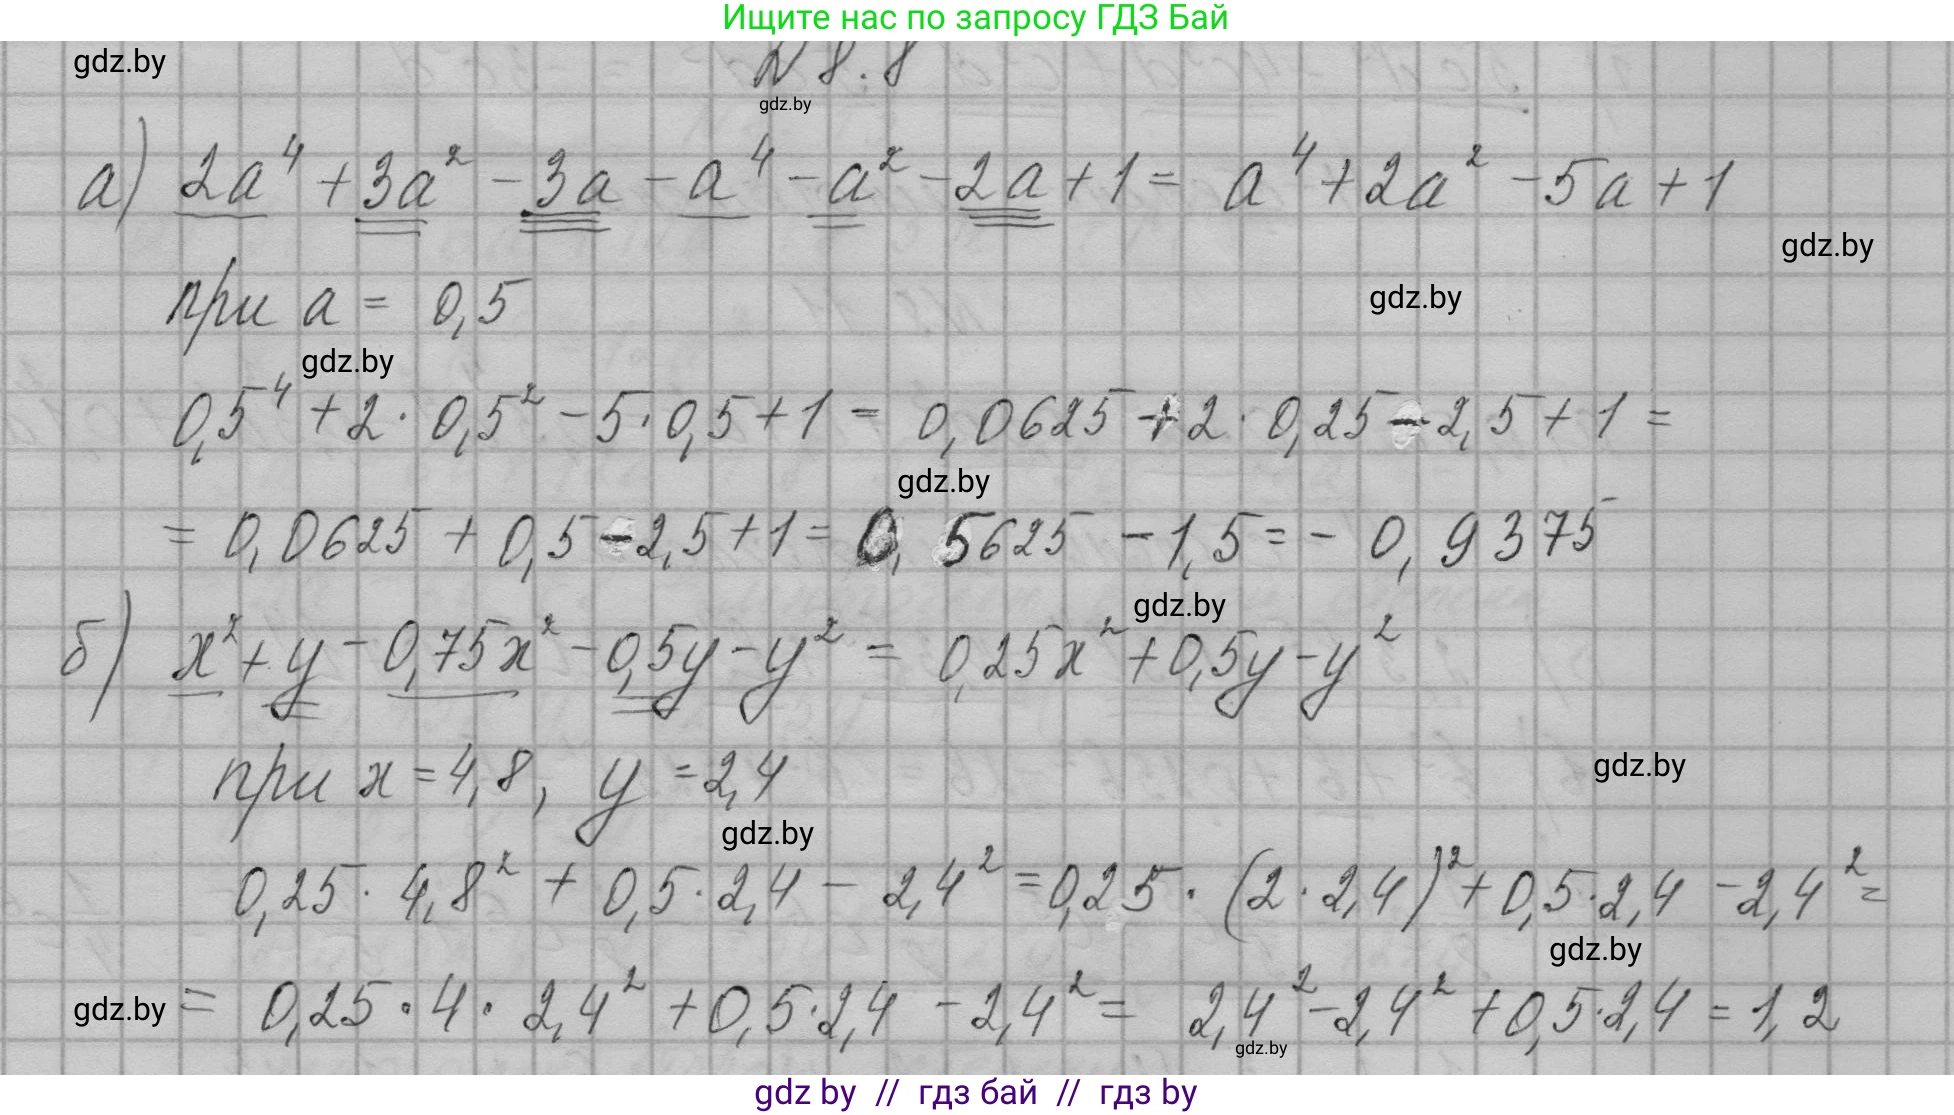 Ищите нас по запросу ГДЗ Бай
gdz.by
№ 8.8
gdz.by
а) 2a⁴ + 3a² - 3a - a⁴ - a² - 2a + 1 = a⁴ + 2a² - 5a + 1
gdz.by
при a = 0,5
gdz.by
gdz.by
0,5⁴ + 2 · 0,5² - 5 · 0,5 + 1 = 0,0625 + 2 · 0,25 - 2,5 + 1 =
gdz.by
= 0,0625 + 0,5 - 2,5 + 1 = 0,5625 - 1,5 = - 0,9375
gdz.by
б) x² + y - 0,75x² - 0,5y - y² = 0,25x² + 0,5y - y²
при x = 4,8, y = 2,4
gdz.by
gdz.by
0,25 · 4,8² + 0,5 · 2,4 - 2,4² = 0,25 · (2 · 2,4)² + 0,5 · 2,4 - 2,4² =
gdz.by
gdz.by
= 0,25 · 4 · 2,4² + 0,5 · 2,4 - 2,4² = 2,4² - 2,4² + 0,5 · 2,4 = 1,2
gdz.by
gdz by // гдз бай // гдз by